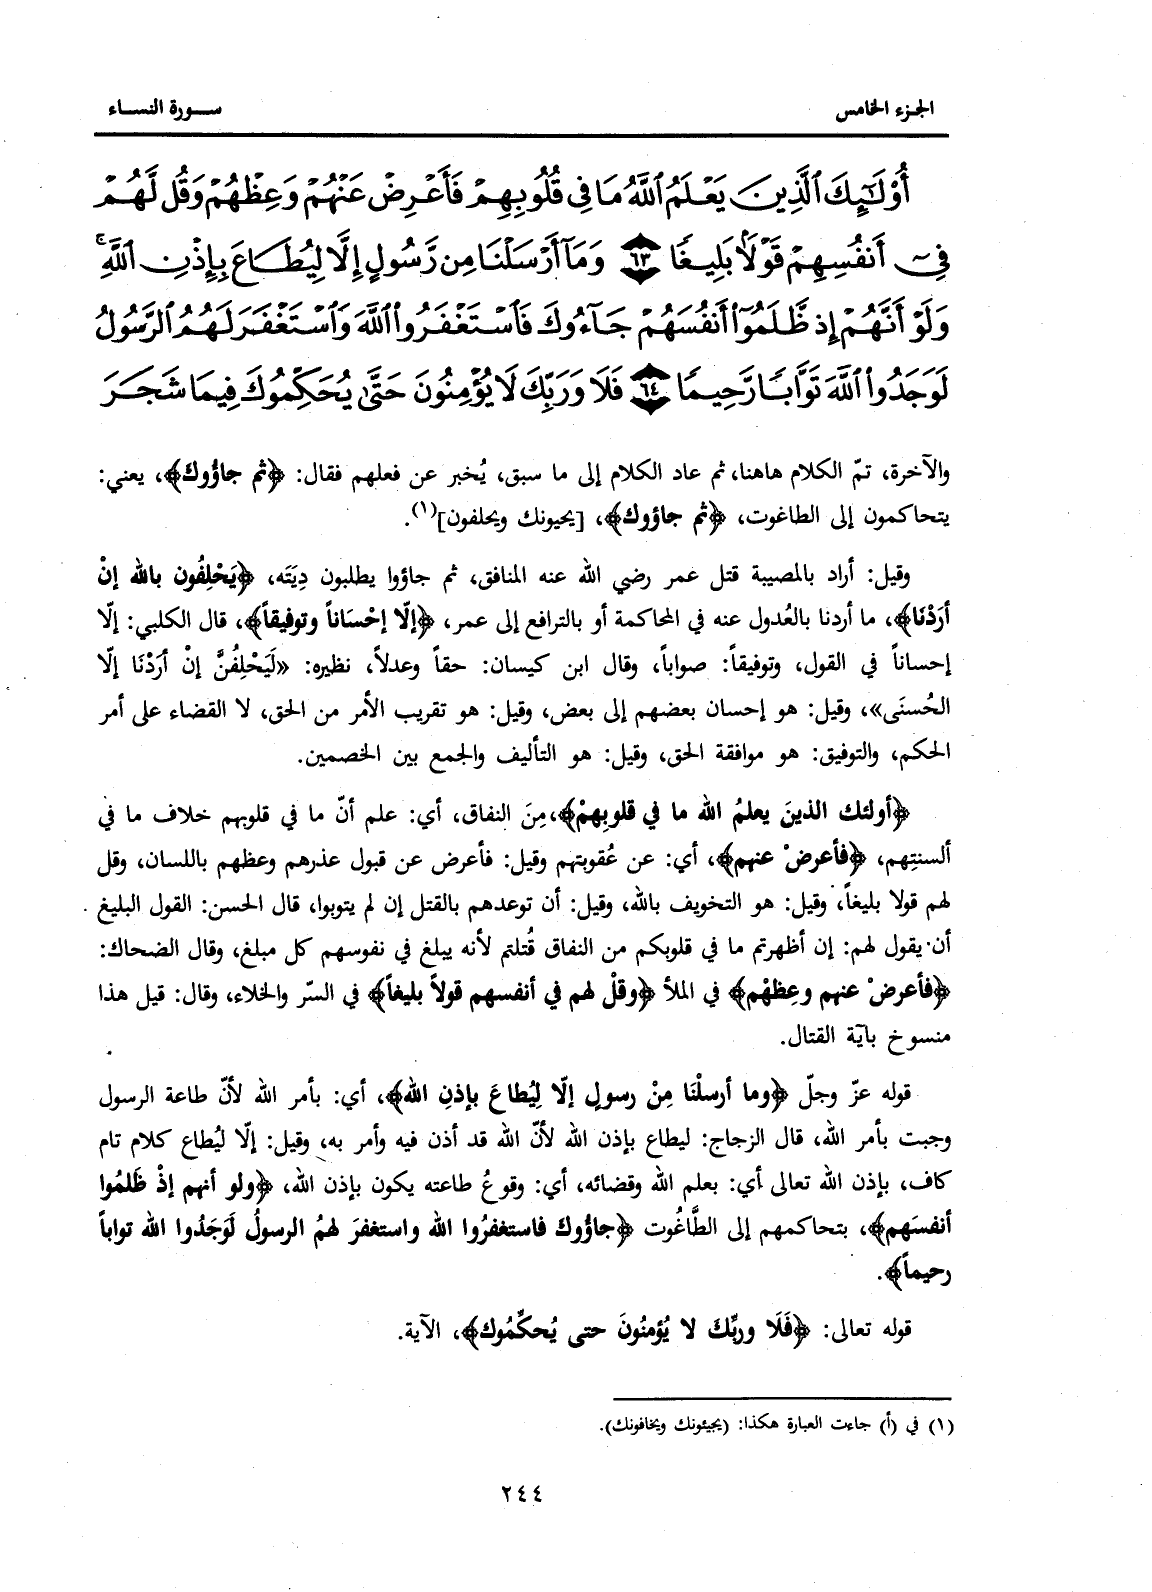 الجزء الخامس
سورة النساء
أُوْلَٰٓئِكَ ٱلَّذِينَ يَعْلَمُ ٱللَّهُ مَا فِى قُلُوبِهِمْ فَأَعْرِضْ عَنْهُمْ وَعِظْهُمْ وَقُل لَّهُمْ
فِىٓ أَنفُسِهِمْ قَوْلًۢا بَلِيغًا ٦٣ وَمَآ أَرْسَلْنَا مِن رَّسُولٍ إِلَّا لِيُطَاعَ بِإِذْنِ ٱللَّهِ ۚ
وَلَوْ أَنَّهُمْ إِذ ظَّلَمُوٓا۟ أَنفُسَهُمْ جَآءُوكَ فَٱسْتَغْفَرُوا۟ ٱللَّهَ وَٱسْتَغْفَرَ لَهُمُ ٱلرَّسُولُ
لَوَجَدُوا۟ ٱللَّهَ تَوَّابًا رَّحِيمًا ٦٤ فَلَا وَرَبِّكَ لَا يُؤْمِنُونَ حَتَّىٰ يُحَكِّمُوكَ فِيمَا شَجَرَ
والآخرة، تمّ الكلام هاهنا، ثم عاد الكلام إلى ما سبق، يُخبر عن فعلهم فقال: ﴿ثم جاؤوك﴾، يعني:
يتحاكمون إلى الطاغوت، ﴿ثم جاؤوك﴾، [يحيونك ويحلفون](١).
وقيل: أراد بالمصيبة قتل عمر رضي الله عنه المنافق، ثم جاؤوا يطلبون دِيَتَه، ﴿يَحْلِفُون بالله إنْ
أرَدْنَا﴾، ما أردنا بالعُدول عنه في المحاكمة أو بالترافع إلى عمر، ﴿إلّا إحْسَاناً وتوفيقاً﴾، قال الكلبي: إلّا
إحساناً في القول، وتوفيقاً: صواباً، وقال ابن كيسان: حقاً وعدلاً، نظيره: «لَيَحْلِفُنَّ إنْ أرَدْنَا إلّا
الحُسنَى»، وقيل: هو إحسان بعضهم إلى بعض، وقيل: هو تقريب الأمر من الحق، لا القضاء على أمر
الحكم، والتوفيق: هو موافقة الحق، وقيل: هو التأليف والجمع بين الخصمين.
﴿أولئك الذينَ يعلمُ الله ما في قلوبِهِمْ﴾،مِنَ النفاق، أي: علم أنّ ما في قلوبهم خلاف ما في
ألسنتِهم، ﴿فأعرضْ عنهم﴾، أي: عن عُقوبتهم وقيل: فأعرض عن قبول عذرهم وعظهم باللسان، وقل
لهم قولا بليغاً، وقيل: هو التخويف بالله، وقيل: أن توعدهم بالقتل إن لم يتوبوا، قال الحسن: القول البليغ
أن يقول لهم: إن أظهرتم ما في قلوبكم من النفاق قُتلتم لأنه يبلغ في نفوسهم كل مبلغ، وقال الضحاك:
﴿فأعرضْ عنهم وعِظْهْم﴾ في الملأ ﴿وقلْ لهم في أنفسهم قولاً بليغاً﴾ في السرّ والخلاء، وقال: قيل هذا
منسوخ بآية القتال.
قوله عزّ وجلّ ﴿وما أرسلْنَا مِنْ رسولٍ إلّا لِيُطاعَ بإذنِ الله﴾، أي: بأمر الله لأنّ طاعة الرسول
وجبت بأمر الله، قال الزجاج: ليطاع بإذن الله لأنّ الله قد أذن فيه وأمر به، وقيل: إلّا ليُطاع كلام تام
كاف، بإذن الله تعالى أي: بعلم الله وقضائه، أي: وقوعُ طاعته يكون بإذن الله، ﴿ولو أنهم إذْ ظَلمُوا
أنفسَهم﴾، بتحاكمهم إلى الطَّاغُوت ﴿جاؤوك فاستغفرُوا الله واستغفرَ لهمُ الرسولُ لَوَجَدُوا الله تواباً
رحيماً﴾.
قوله تعالى: ﴿فَلَا وربِّكَ لا يُؤمنُونَ حتى يُحكِّمُوك﴾، الآية.
(١) في (أ) جاءت العبارة هكذا: (يجيئونك ويخافونك).
٢٤٤